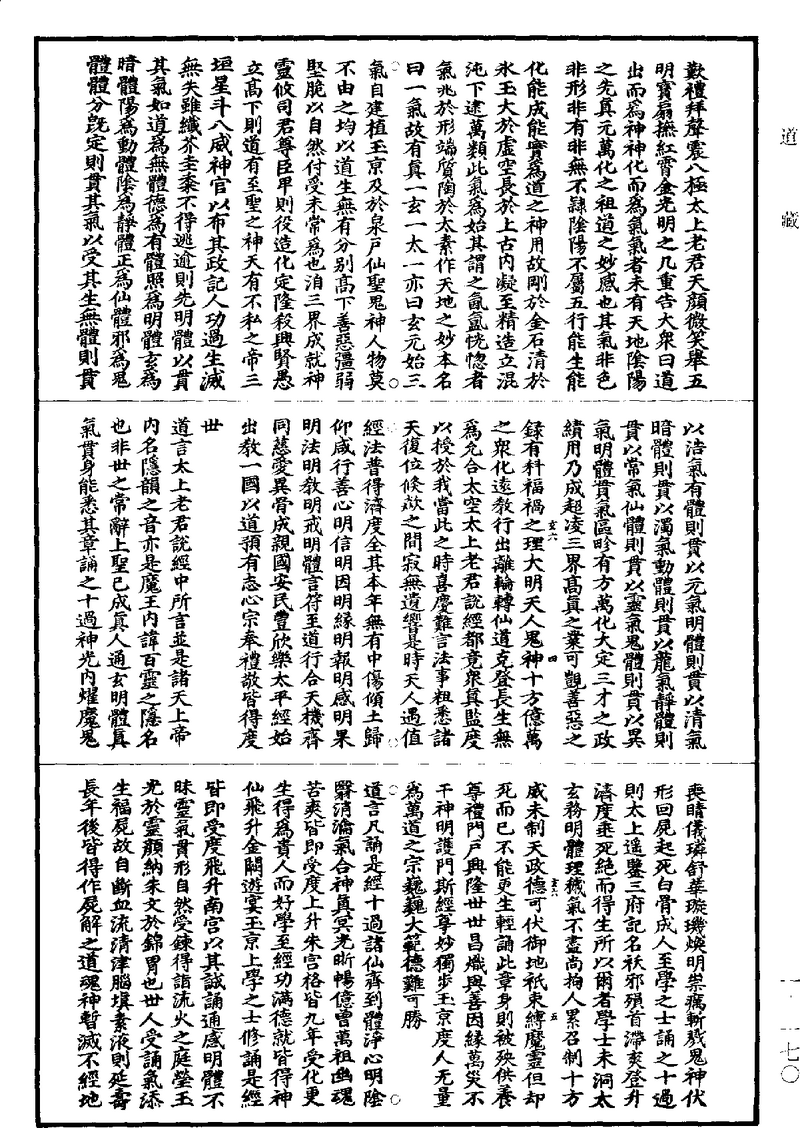 道藏
歎禮拜聲震八極太上老君天顏微笑舉五
明寶扇撫紅霄金光明之几重告大衆曰道
出而爲神神化而爲氣氣者未有天地陰陽
之先真元萬化之祖道之妙感也其氣非色
非形非有非無不隸陰陽不屬五行能生能
化能成能實爲道之神用故剛於金石清於
氷玉大於虛空長於上古内凝至精造立混
沌下逮萬類此氣爲始其謂之氤氳恍惚者
氣兆於形端質陶於太素作天地之妙本名
曰一氣故有真一玄一太一亦曰玄元始三
氣自建植玉京及於泉户仙聖鬼神人物莫
不由之均以道生無有分別高下善惡彊弱
堅脆以自然付受未常爲也洎三界成就神
靈攸司君尊臣卑則役造化定隆殺興賢愚
立高下則道有至聖之神天有不私之帝三
垣星斗八威神官以布其政記人功過生滅
無失雖纖芥圭黍不得逃逾則先明體以貫
其氣如道爲無體德爲有體照爲明體玄爲
暗體陽爲動體陰爲靜體正爲仙體邪爲鬼
體體分旣定則貫其氣以受其生無體則貫
以浩氣有體則貫以元氣明體則貫以清氣
暗體則貫以濁氣動體則貫以龍氣靜體則
貫以常氣仙體則貫以靈氣鬼體則貫以異
氣明體貫氣區畛有方萬化大定三才之政
績用乃成超凌三界高真之業可觀善惡之
録有科福禍之理大明天人鬼神十方億萬
之衆化遠教行出離輪轉仙道克登長生無
爲允合太空太上老君說經都竟衆真監度
以授於我當此之時喜慶難言法事粗悉諸
天復位倏歘之間寂無遺響是時天人遇值
經法普得濟度全其本年無有中傷傾土歸
仰咸行善心明信明因明緣明報明感明果
明法明教明戒明體言符至道行合天機齊
同慈愛異骨成親國安民豐欣樂太平經始
出教一國以道預有志心宗奉禮敬皆得度
世
道言太上老君說經中所言並是諸天上帝
内名隱韻之音亦是魔王内諱百靈之隱名
也非世之常辭上聖已成真人通玄明體真
氣貫身能悉其章誦之十過神光内燿魔鬼
玄六
四
喪晴儀璘舒華璇璣煥明祟癘斬戮鬼神伏
形回屍起死白骨成人至學之士誦之十過
則太上遥鑒三府記名祅邪殞首滯爽登升
濟度垂死絶而得生所以爾者學士未洞太
玄務明體理穢氣不盡尚拘人累召制十方
威未制天政德可伏御地祇束縛魔靈但却
死而已不能更生輕誦此章身則被殃供養
尊禮門户興隆世世昌熾與善因緣萬災不
干神明護門斯經尊妙獨步玉京度人无量
爲萬道之宗巍巍大範德難可勝
道言凡誦是經十過諸仙齊到體淨心明陰
翳消淪氣合神真冥光昕暢億曾萬祖幽魂
苦爽皆即受度上升朱宮格皆九年受化更
生得爲貴人而好學至經功滿德就皆得神
仙飛升金闕遊宴玉京上學之士修誦是經
皆即受度飛升南宮以其誠誦通感明體不
昧靈氣貫形自然受鍊得詣流火之庭瑩玉
光於靈顔納朱文於錦冑也世人受誦氣添
生福屍故自斷血流清津腦填素液則延壽
長年後皆得作屍解之道魂神暫滅不經地
玄六
五
一·一七〇